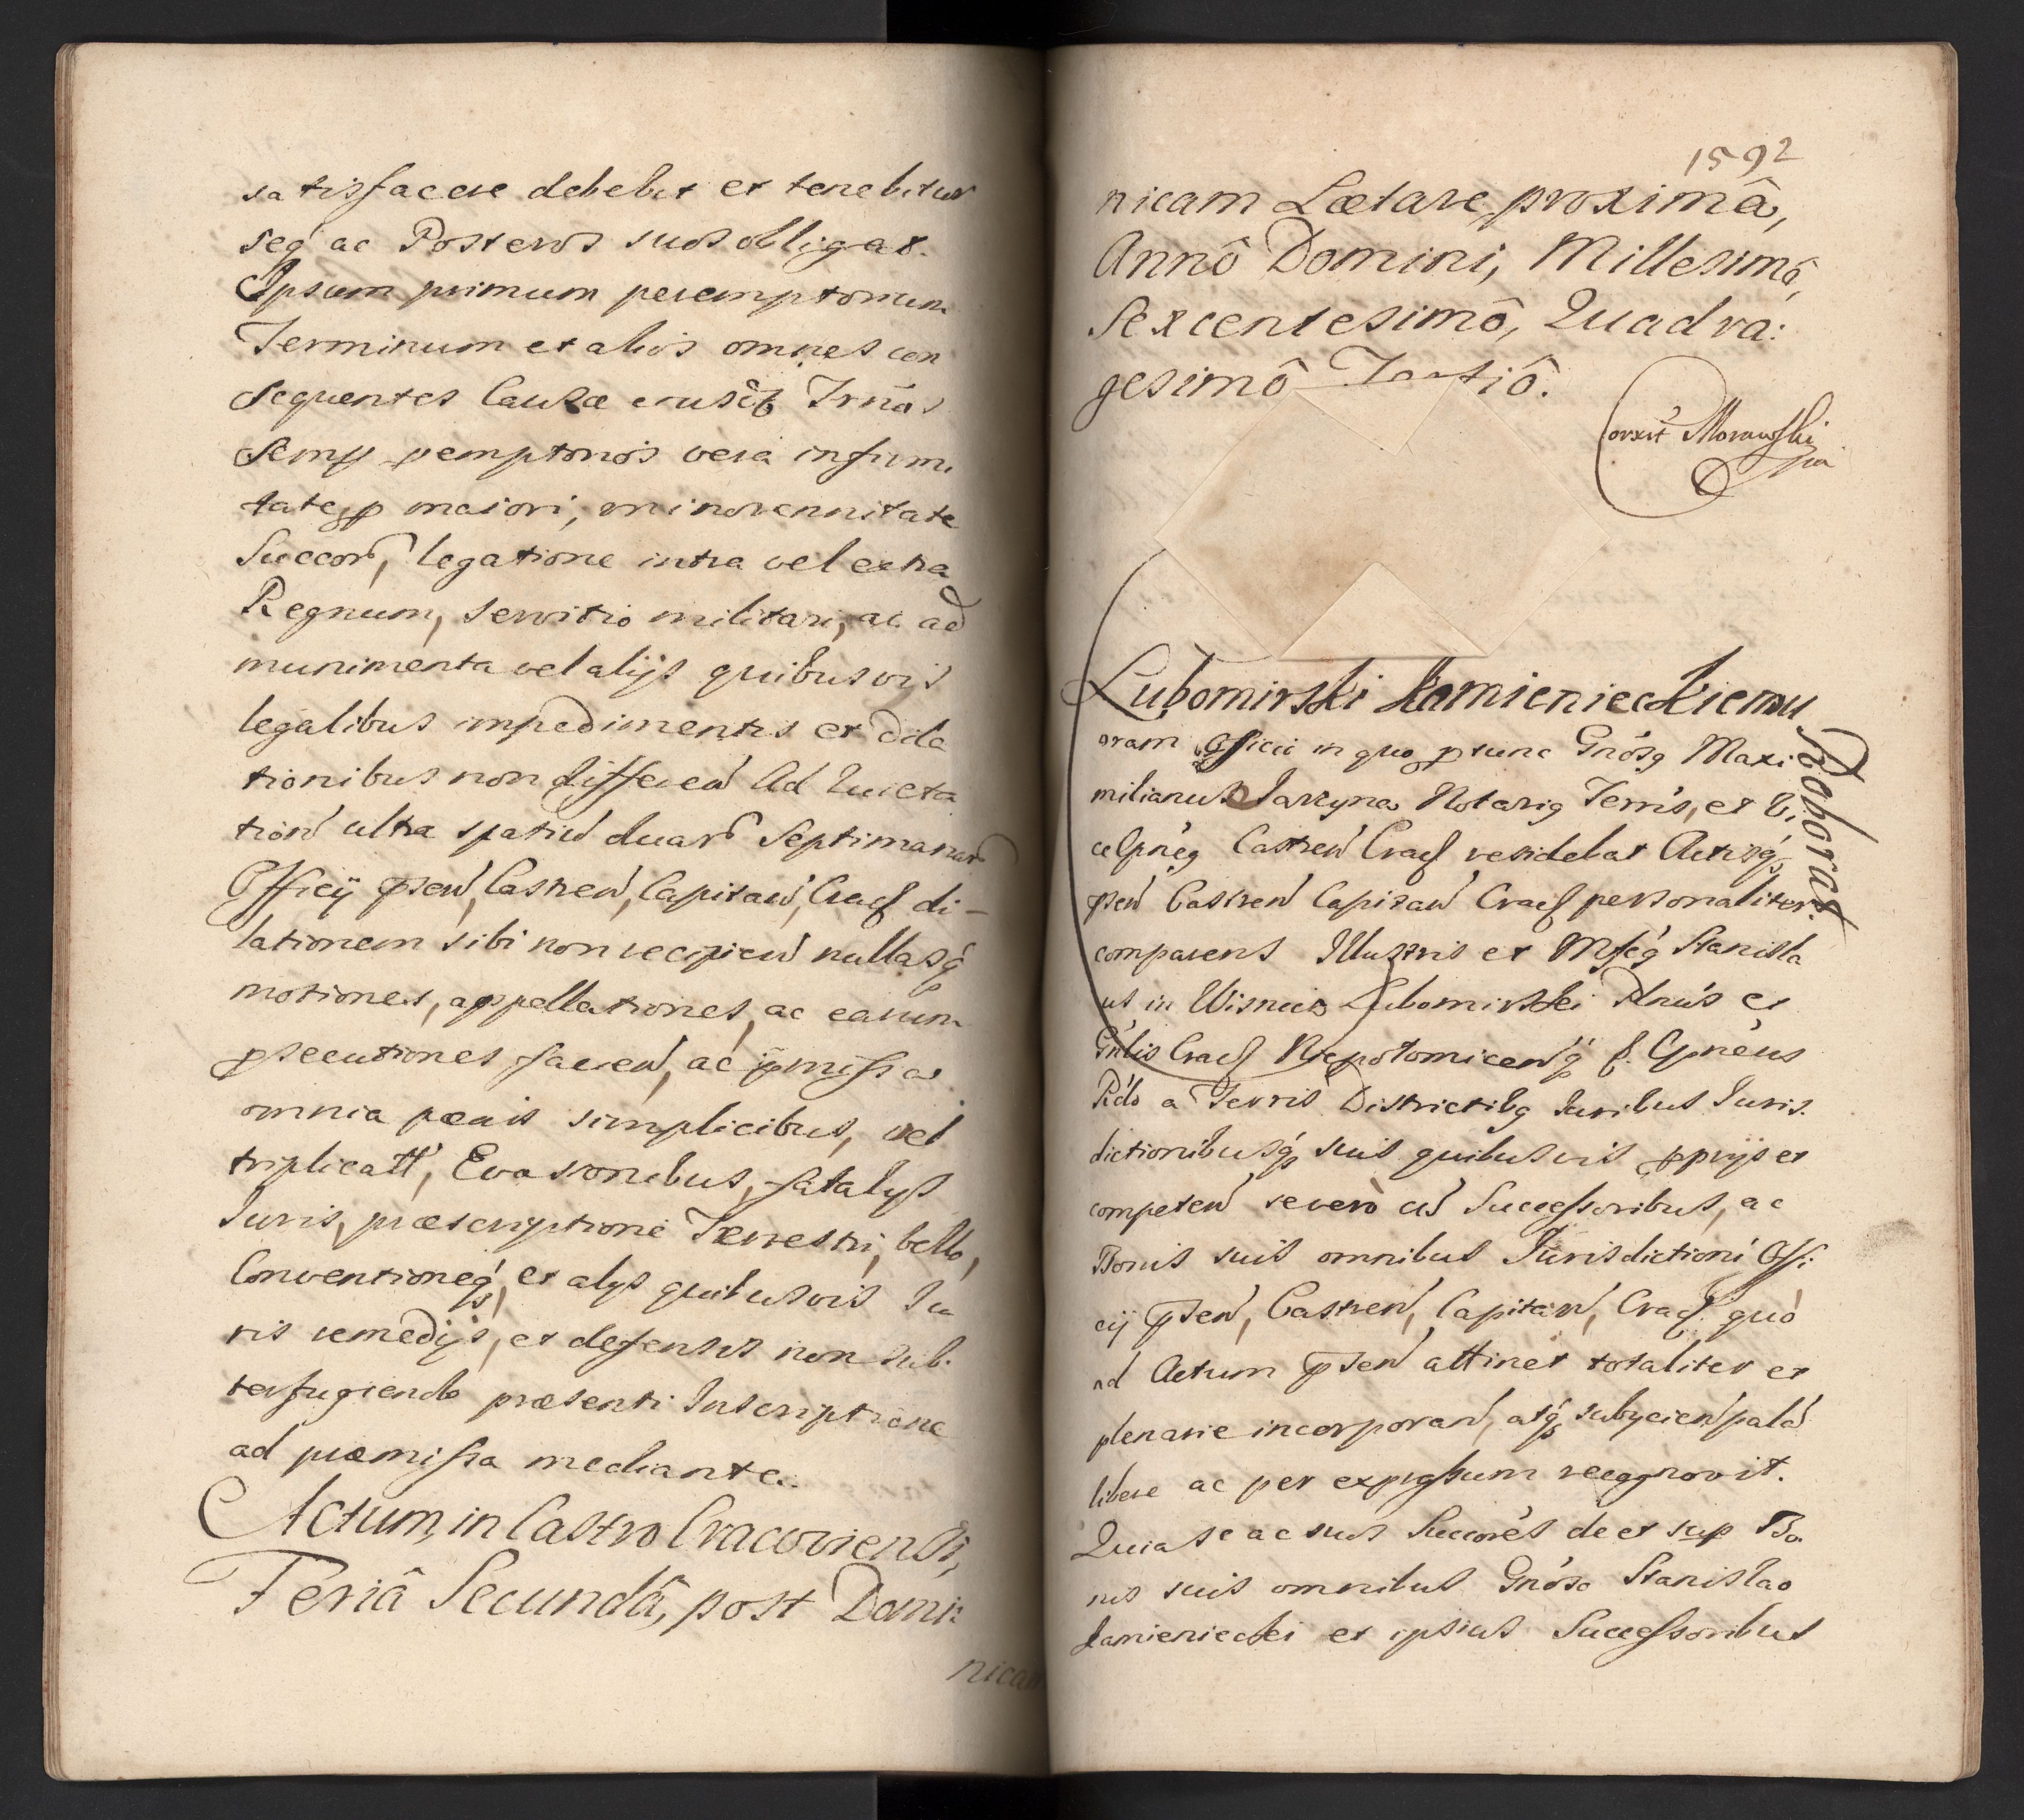 satisfacere debebit et tenebitur
seq́ ac Posteros suos obligat.
Ipsum primum peremptorium
Terminum et alios omnes con
sequentes Causæ
Semp pemptorios vera infirmi
tate maiori, minorennitate
Succor, legatione intra vel extra
Regnum, servitio militari, ac ad
munimenta vel alijs quibusvis
legalibus impedimentis et dila
tionibus non differen Ad Quieta
tion ultra spatiu duar Septimanar
Officij psen, Castren, Capitan, Crac di-
lationem sibi non recipien nullasq́
motiones, appellationes, ac earum
psecutiones facien, ac pmissa
omnia pænis simplicibus, vel
triplicatt, Evasionibus, fatalijs
Iuris, præscriptione Terrestri, bello,
Conventioneq́, et alijs quibusvis Iu
ris remedijs, et defensis non sub
terfugiendo præsenti Inscriptione
ad præmissa mediante.
Actum, in Castro Cracoviensi,
Feriâ Secundâ, post Domi:
nicam
1592
nicam Lætare proximâ,
Annô Domini, Millesimô,
Sexcentesimô, Quadra:
gesimô Tertiô.
Corxit Morawski
Lubomirski Kamienieckiemu
Roborat
oram Officii in quo ptunc Gnosq Maxi
milianus Jarzyna Notariq Terris, et Vi
Castren Crac residebat Actisq́
psen Castren Capitan Crac personaliter
comparens Illustris et Mfcq Stanisla
us in Wisnicz Lubomirski et
Crac Niepolomicenq́
a Terris Districtibq Iuribus Iuris
dictionibusq́ suis quibusvis pprijs et
competen se vero cu Successoribus, ac
Bonis suis omnibus Iurisdictioni Offi
cij psen, Castren, Capitan, Crac. quo
ad Actum psen attinet totaliter et
plenarie incorporan, atq́ subijcien pala
libere ac per expressum recognovit.
Quia se ac suos Succores de et sup Bo
nis suis omnibus Gnoso Stanislao
Kamieniecki et ipsius Successoribus